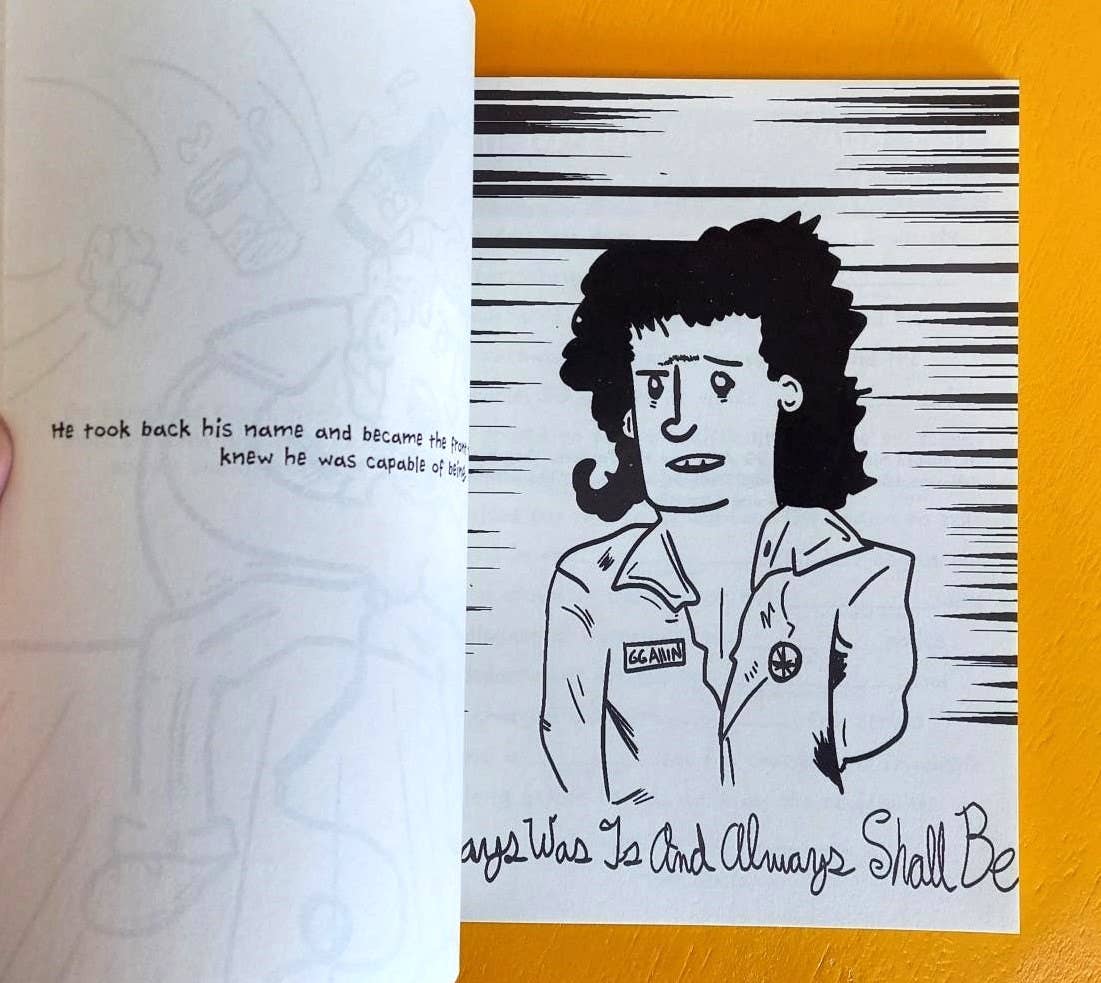 He took back his name and became the front
knew he was capable of being
GG Allin
ays Was Is And Always Shall Be